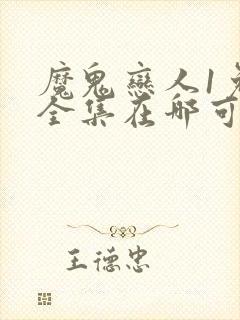 魔鬼戀人1免
全集在哪可
王德忠